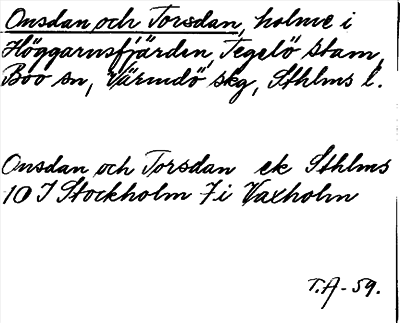 Onsdan och Torsdan, holme i
Höggarnsfjärden, Tegelö stam,
Boo sn, Värmdö skg, Sthlms l.
Onsdan och Torsdan ek Sthlms
10 J Stockholm 7 i Vaxholm
T.A - 59.